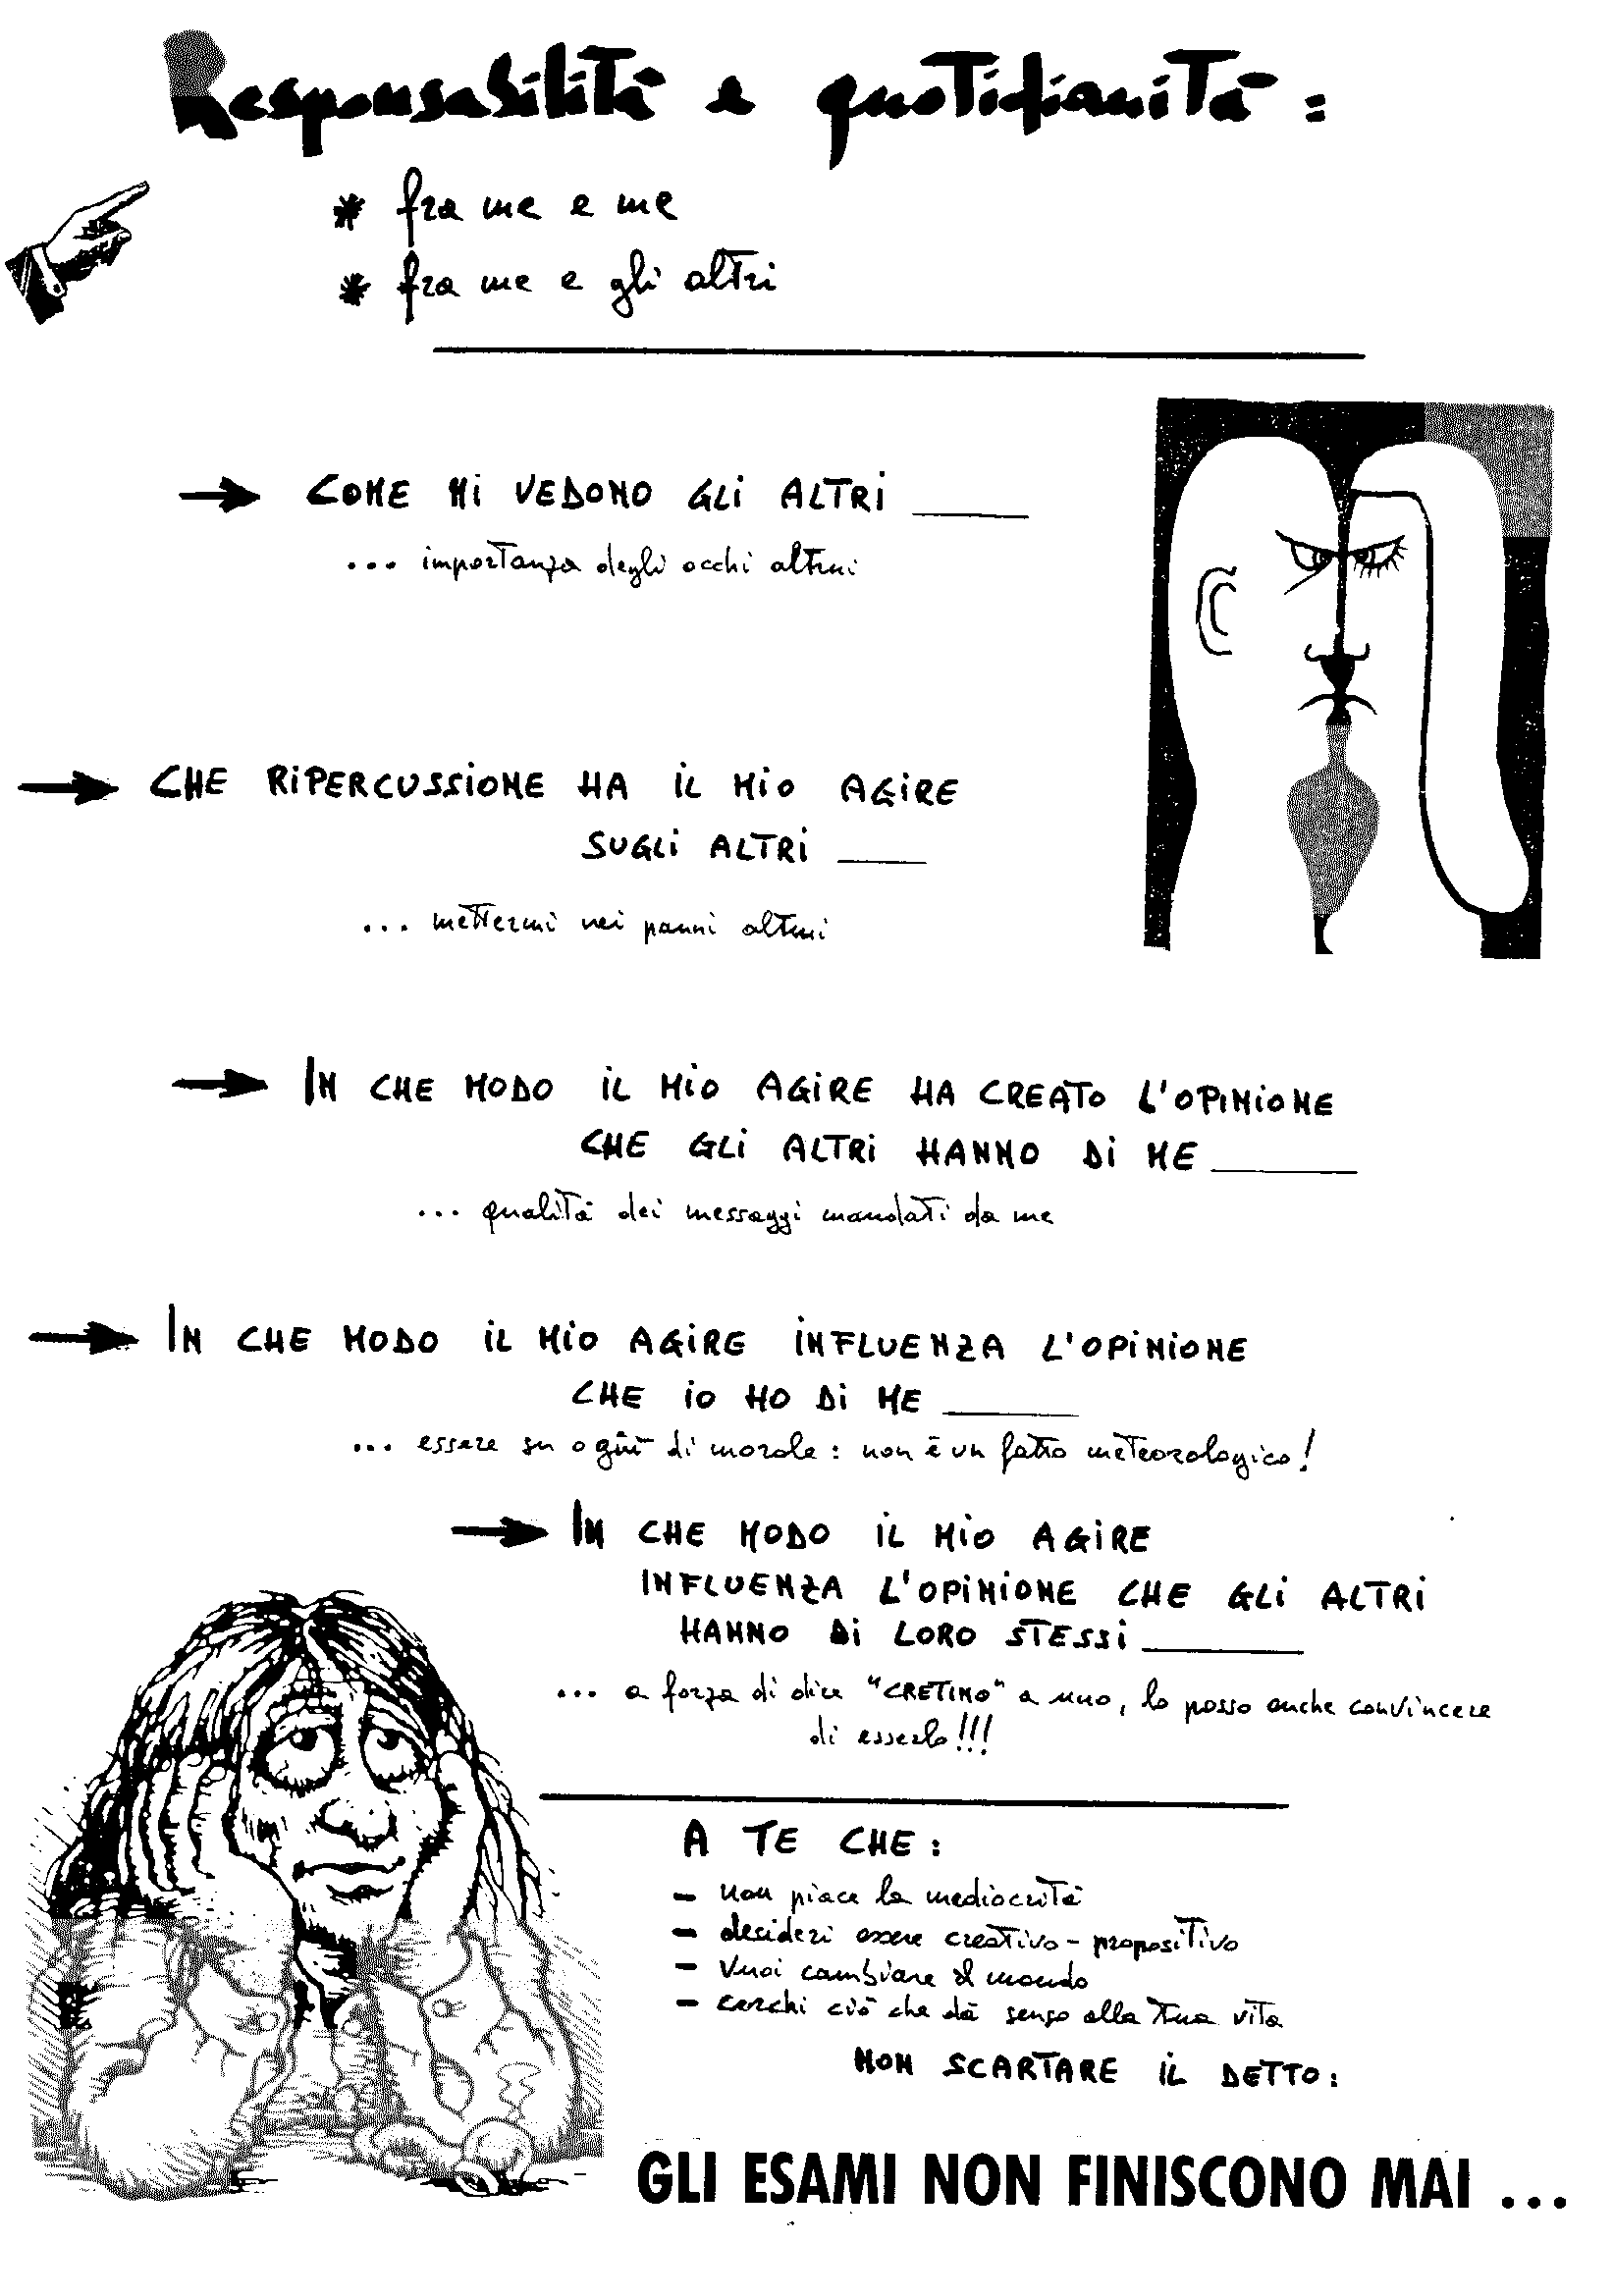 Responsabilità e quotidianità:
* fra me e me
* fra me e gli altri
→ COME MI VEDONO GLI ALTRI ____
... importanza degli occhi altrui
→ CHE RIPERCUSSIONE HA IL MIO AGIRE
SUGLI ALTRI ____
... mettermi nei panni altrui
→ IN CHE MODO IL MIO AGIRE HA CREATO L'OPINIONE
CHE GLI ALTRI HANNO DI ME ____
... qualità dei messaggi mandati da me
→ IN CHE MODO IL MIO AGIRE INFLUENZA L'OPINIONE
CHE IO HO DI ME ____
... essere su o giù di morale: non è un fatto meteorologico!
→ IN CHE MODO IL MIO AGIRE
INFLUENZA L'OPINIONE CHE GLI ALTRI
HANNO DI LORO STESSI ____
... a forza di dire "CRETINO" a uno, lo posso anche convincere
di esserlo!!!
A TE CHE:
- non piace la mediocrità
- desideri essere creativo-propositivo
- vuoi cambiare il mondo
- cerchi ciò che dà senso alla tua vita
NON SCARTARE IL DETTO:
GLI ESAMI NON FINISCONO MAI ...